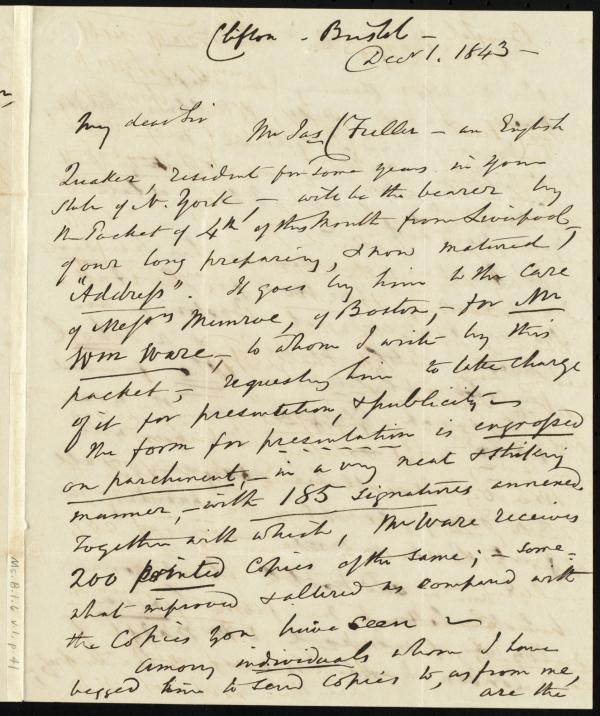 Clifton - Bristol -
Decr 1. 1843 -
My dear Sir
Mr Jas Fuller - an English
Quaker, resident for some years in your
state of N. York, - will be the bearer by
the Packet of 4th of this Month from Liverpool,
of our long preparing, & now matured,
"Address". It goes by him to the care
of Messrs Munroe, of Boston, - for Mr
Wm Ware, - to whom I write by this
packet, - requesting him to take charge
of it for presentation, & publicity -
The form for presentation is engrossed
on parchment, - in a very neat & striking
manner, - with 185 signatures annexed
Together with which, Mr Ware receives
200 printed Copies of the same; - some-
what improved & altered as compared with
the Copies you have seen -
Among individuals whom I have
begged him to send Copies to, as from me,
are the
Ms. B. 1. 6 v. 1, p. 41